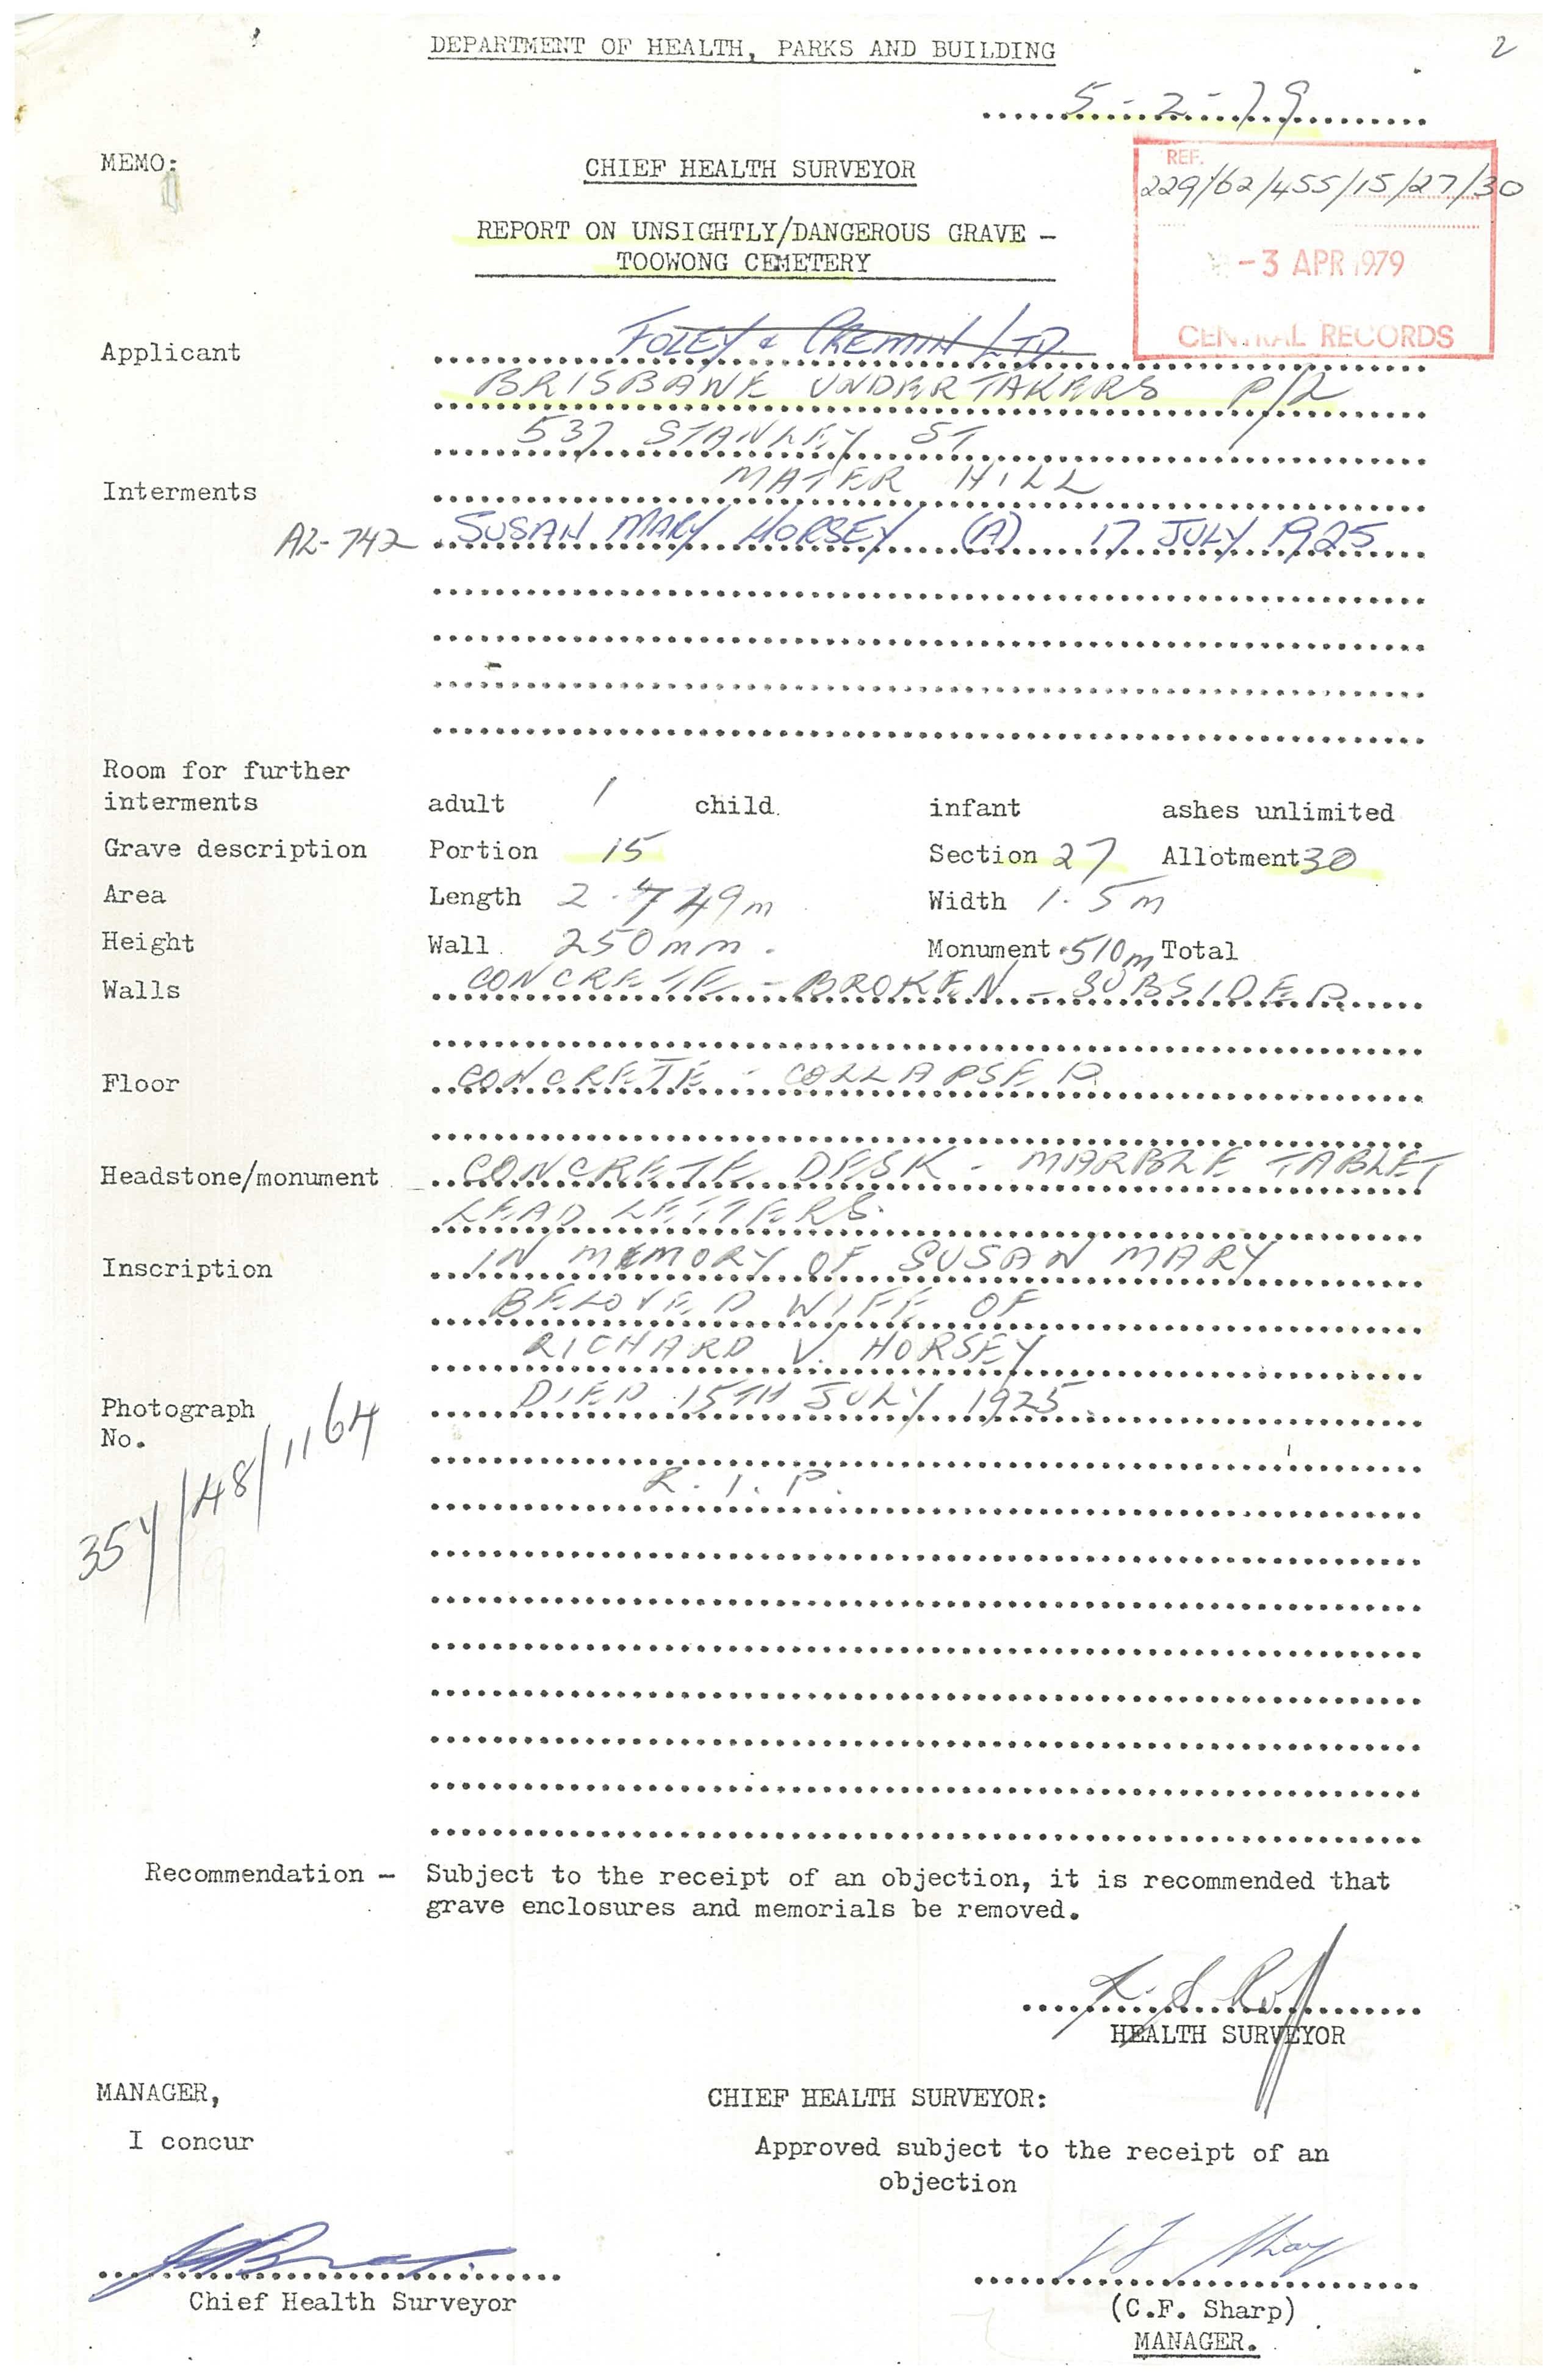 2
DEPARTMENT OF HEALTH, PARKS AND BUILDING
5-2-79
MEMO:
CHIEF HEALTH SURVEYOR
REF.
229/62/455/15/27/30
REPORT ON UNSIGHTLY/DANGEROUS GRAVE -
TOOWONG CEMETERY
-3 APR 1979
CENTRAL RECORDS
Applicant FOLEY & CREMIN LTD
BRISBANE UNDERTAKERS P/L
537 STANLEY ST
Interments MATER HILL
A2-742 SUSAN MARY HORSEY (A) 17 JULY 1925
Room for further
interments adult 1 child. infant ashes unlimited
Grave description Portion 15 Section 27 Allotment 30
Area Length 2.749m Width 1.5m
Height Wall. 250mm. Monument .510m Total
Walls CONCRETE - BROKEN - SUBSIDED
Floor CONCRETE - COLLAPSED
Headstone/monument CONCRETE DESK - MARBLE TABLET
LEAD LETTERS.
Inscription IN MEMORY OF SUSAN MARY
BELOVED WIFE OF
RICHARD V. HORSEY
Photograph DIED 15TH JULY 1925
No.
R.I.P.
Recommendation - Subject to the receipt of an objection, it is recommended that
grave enclosures and memorials be removed.
HEALTH SURVEYOR
MANAGER, CHIEF HEALTH SURVEYOR:
I concur Approved subject to the receipt of an
objection
Chief Health Surveyor
(C.F. Sharp)
MANAGER.